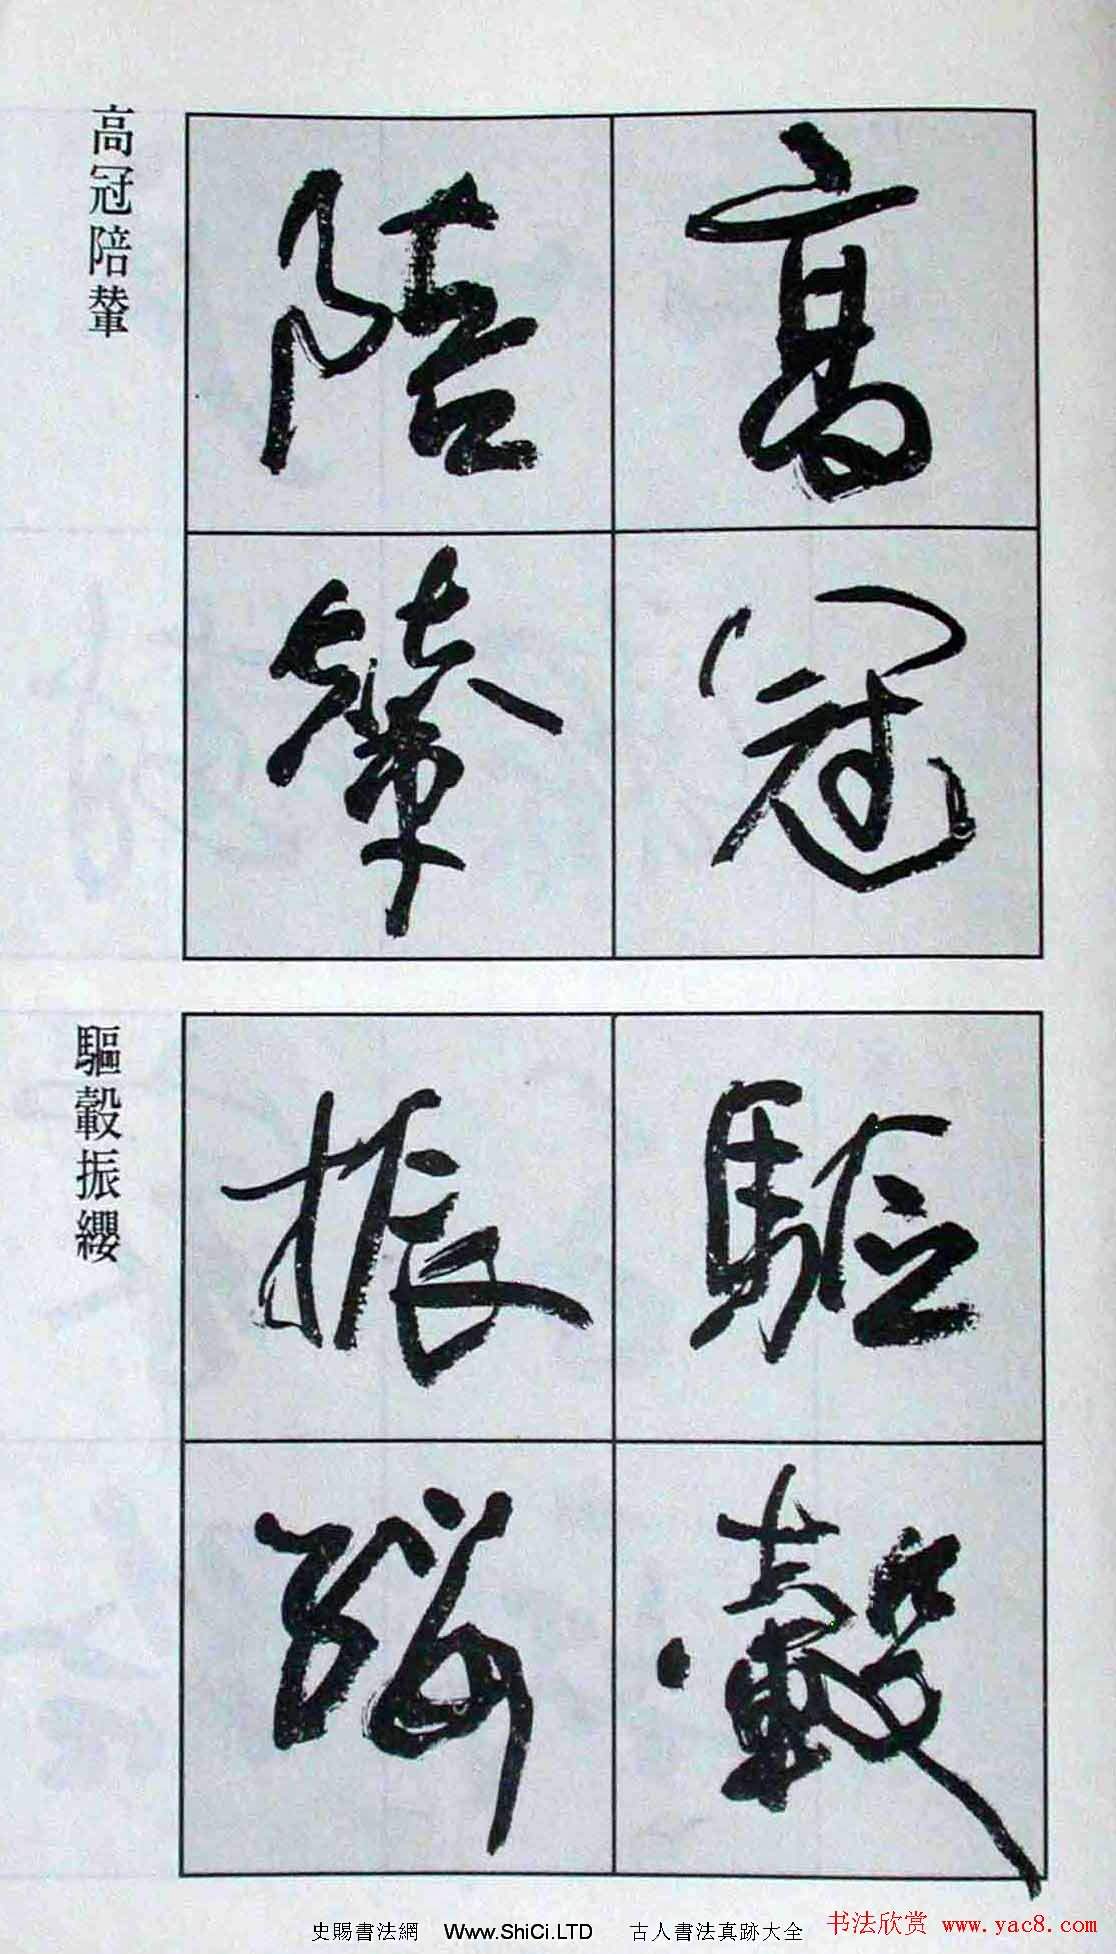 高冠
陪輦
高冠陪輦
驅轂
振纓
驅轂振纓
史賜書法網 Www.ShiCi.LTD 古人書法真跡大全
书法欣赏 www.yac8.com